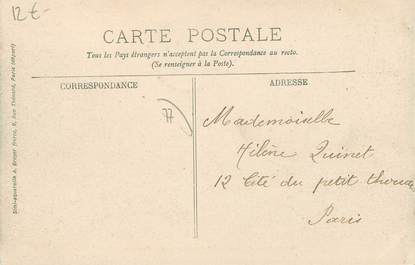 12€-
CARTE POSTALE
Tous les Pays étrangers n'acceptent pas la Correspondance au recto.
(Se renseigner à la Poste).
CORRESPONDANCE
ADRESSE
77
Mademoiselle
Hélène Quinet
12 Cité du petit thouars
Paris
Simi-aquarelle A. Breger frères, 9, rue Thénard, Paris (déposé)